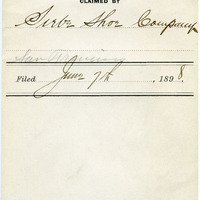 CLAIMED BY
Siebe Shoe Company
San Francisco
Filed June 7th, 1898.